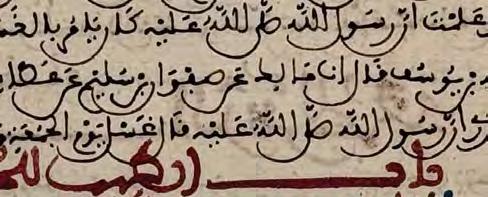 علمت ان رسول الله صلى الله عليه كان يامر بالغسل
بن يوسف قال انا مالك عن صفوان بن سليم عن عطا بن
ان رسول الله صلى الله عليه قال غسل يوم الجمعة
باب الطيب للجمعة